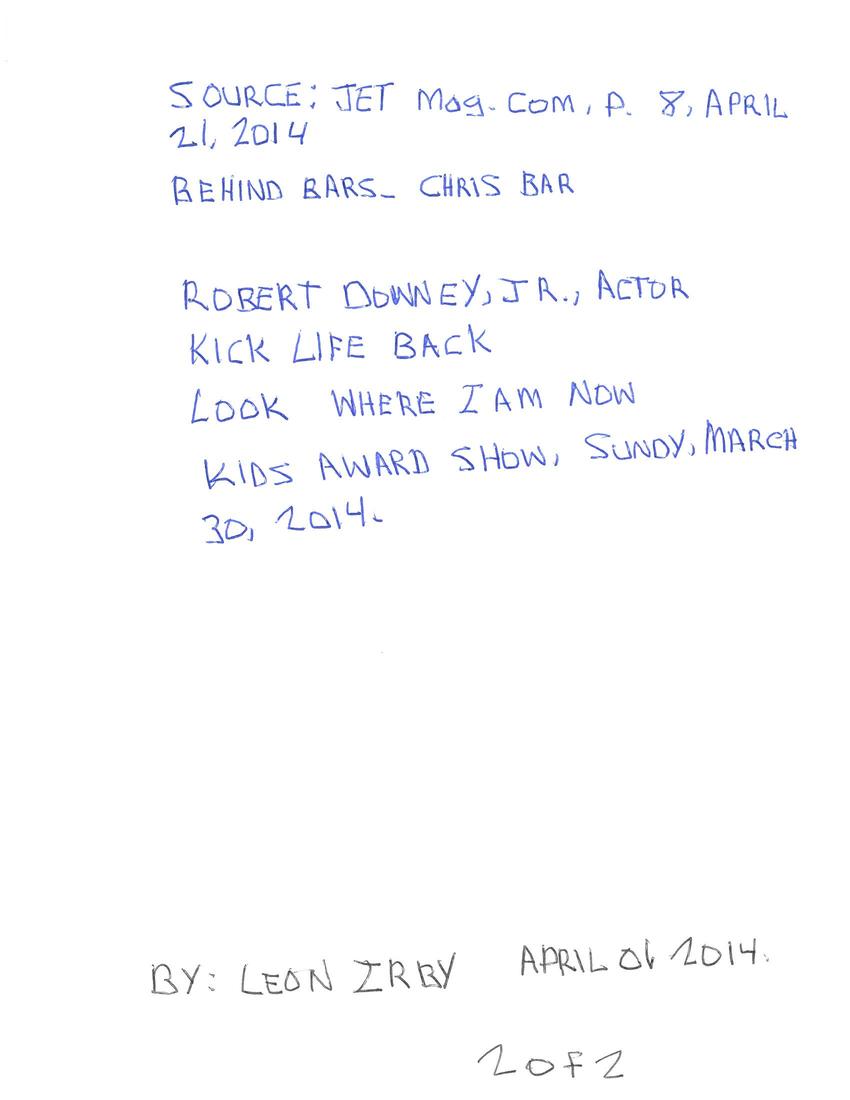 SOURCE: JET Mag.COM, P. 8, APRIL
21, 2014
BEHIND BARS_ CHRIS BAR
ROBERT DOWNEY, JR., ACTOR
KICK LIFE BACK
LOOK WHERE I AM NOW
KIDS AWARD SHOW, SUNDY, MARCH
30, 2014.
BY: LEON IRBY APRIL 01 2014.
2 OF 2